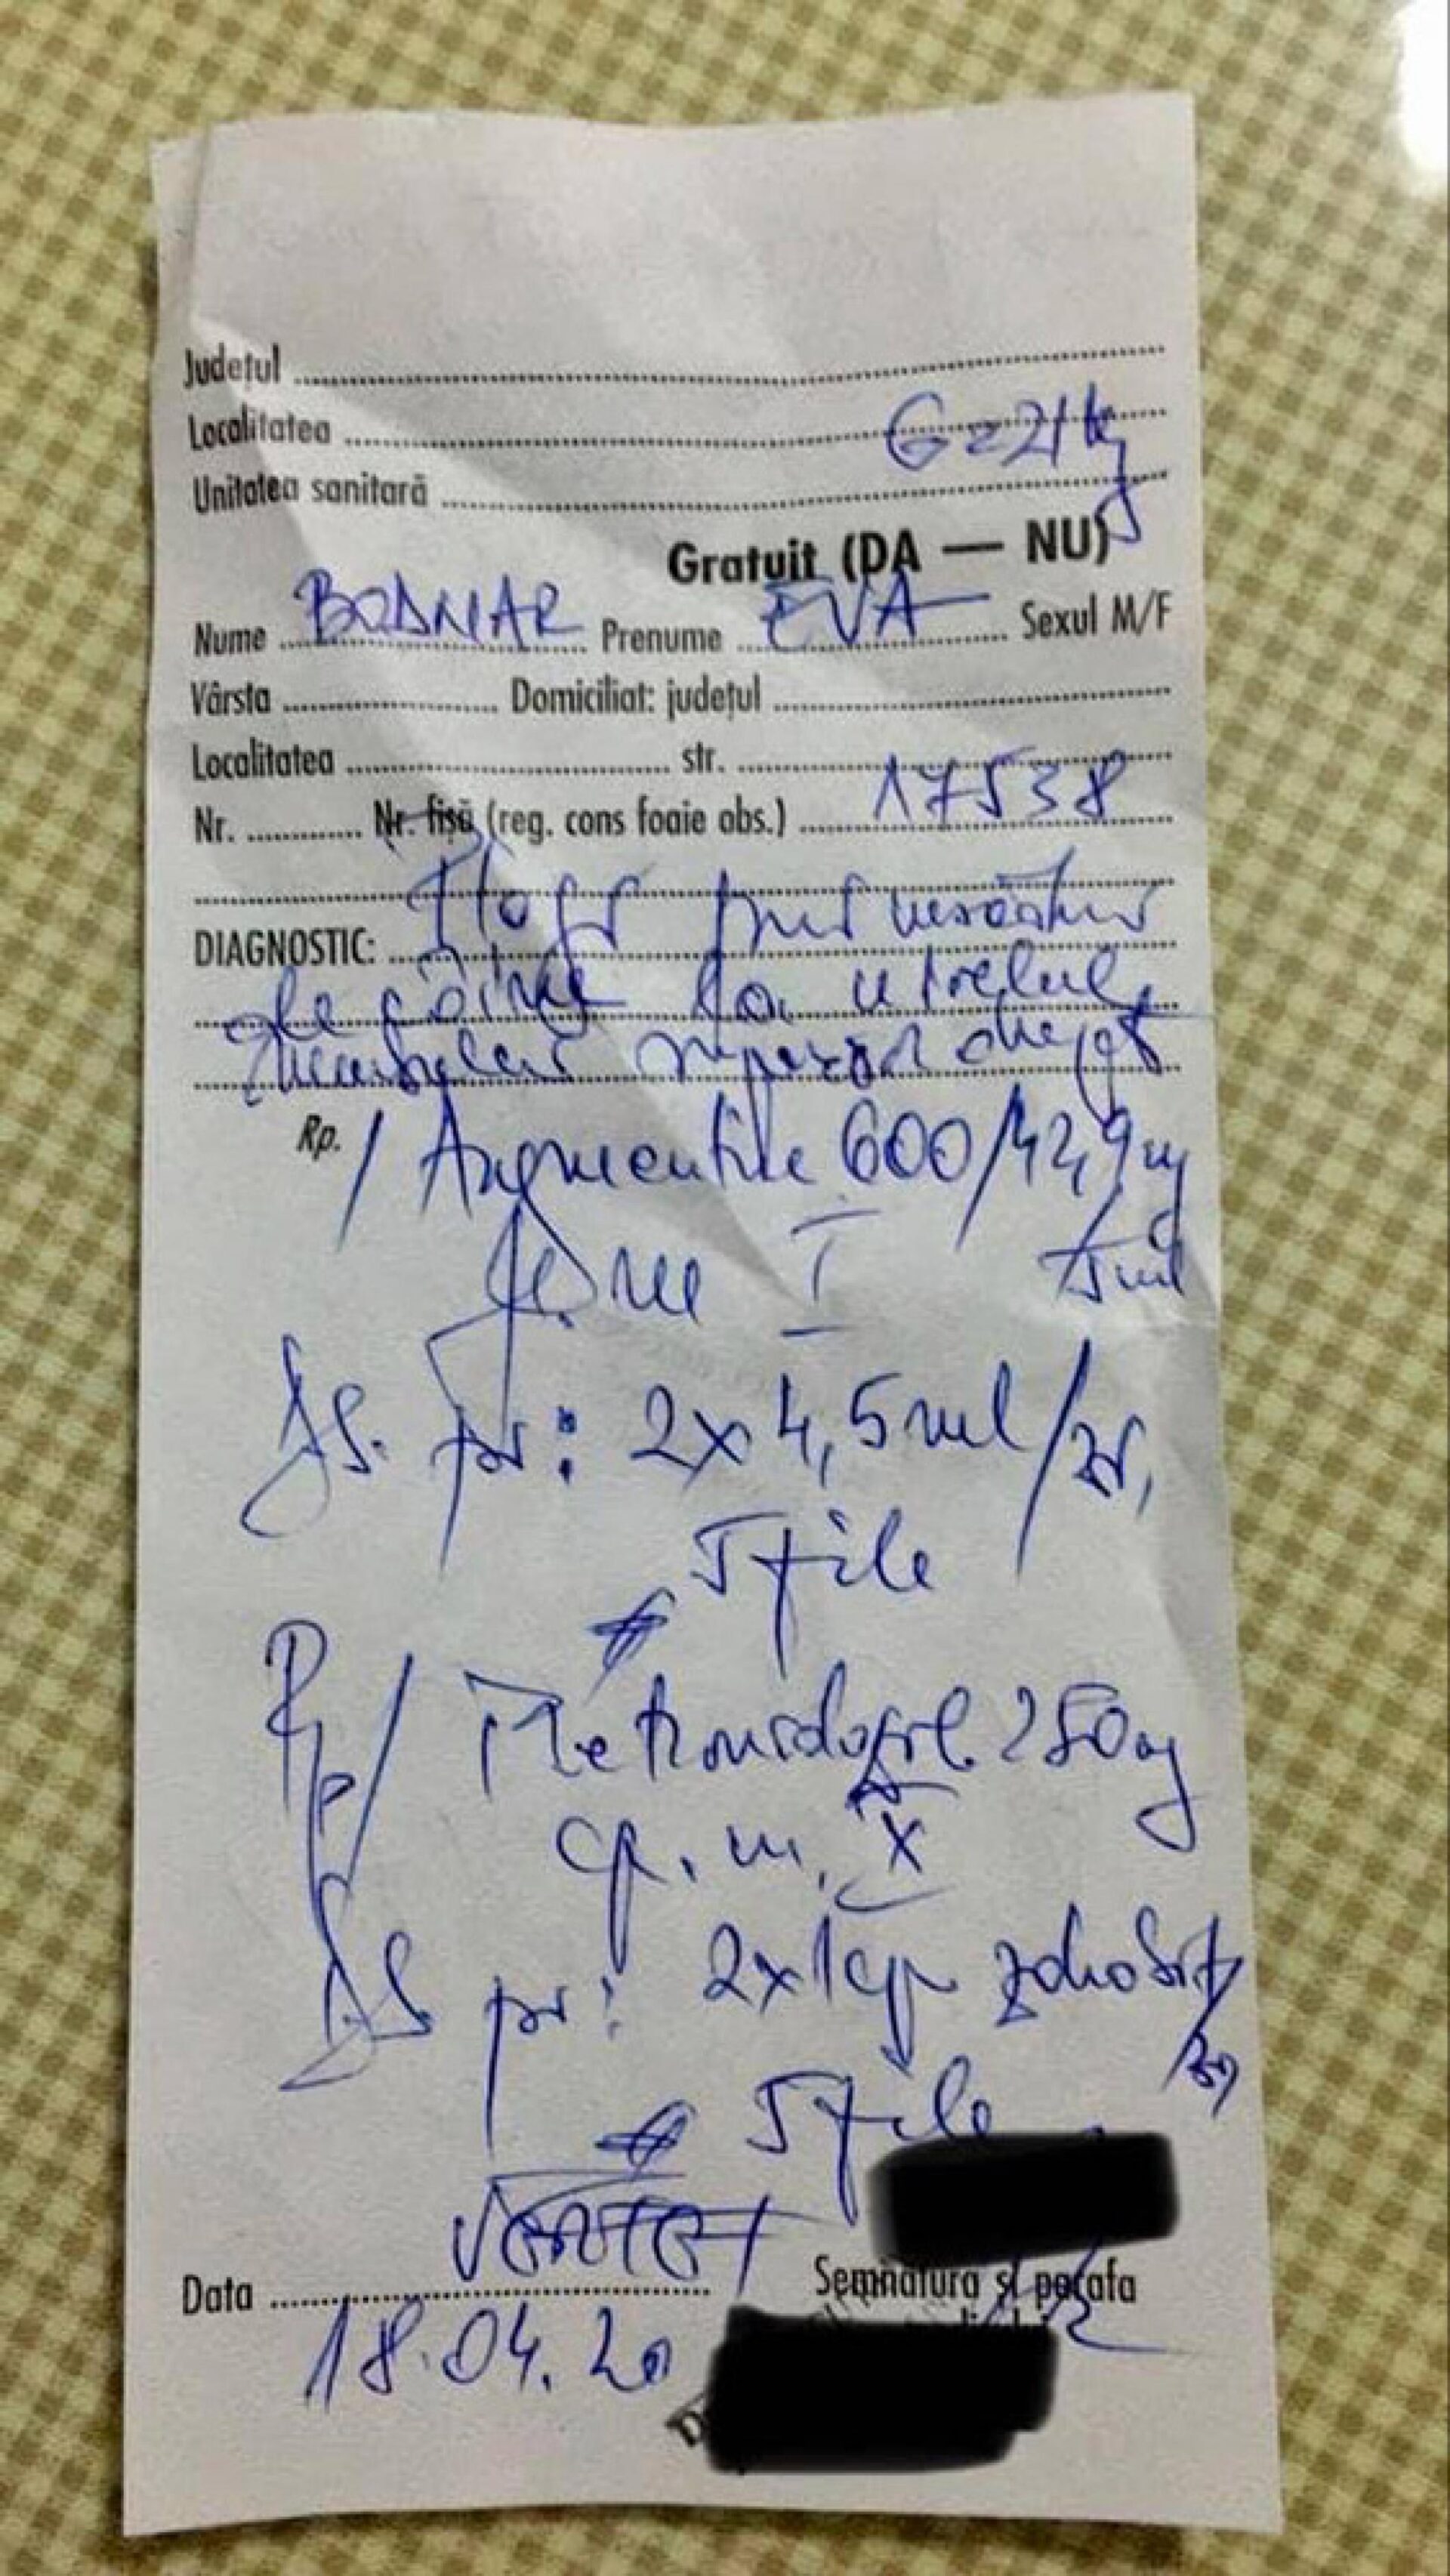 Județul
Localitatea
G=21kg
Unitatea sanitară
Gratuit (DA — NU)
Nume BODNAR Prenume EVA Sexul M/F
Vârsta Domiciliat: județul
Localitatea str.
Nr. Nr. fișă (reg. cons foaie obs.) 17538
prin
DIAGNOSTIC:
de câine la nivelul
membrului superior drept
Rp. / Augmentin 600/42,9mg
/5ml
I
DS. : 2x4,5ml/zi,
5 zile
Rp/ Metronidazol 250mg
cp. nr. X
DS : 2x1cp zdrobit/
zi,
5 zile
Data Semnătura și parafa
18.04.20